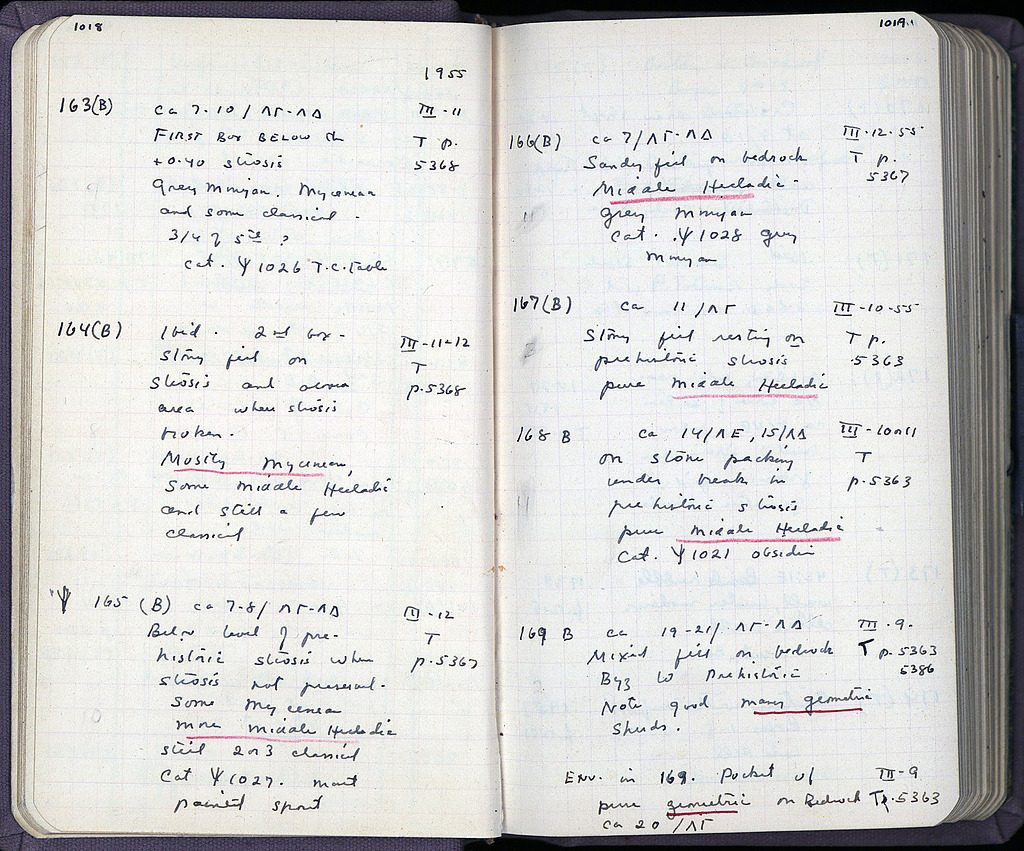 1018
1955
163(B) ca 7-10/ΛΓ-ΛΔ III-11
FIRST BOX BELOW th T p.
+0.40 strosis 5368
Grey Minyan. Mycenean
and some classical.
3/4 of 5th ?
Cat. Ψ 1026 T.C. Table
164(B) Ibid. 2nd box- III-11-12
Stony fill on T
strosis and over p.5368
area where strosis
broken.
Mostly Mycenean,
Some Middle Helladic
and still a few
classical
Ψ 165 (B) ca 7-8/ΛΓ-ΛΔ III-12
Below level of pre- T
historic strosis where p.5367
strosis not present.
Some Mycenean
more Middle Helladic
still 2 or 3 classical
Cat Ψ 1027. matt
painted spout
1019
166(B) ca 7/ΛΓ-ΛΔ III-12-55
Sandy fill on bedrock T p.
Middle Helladic- 5367
grey Minyan
Cat. Ψ 1028 grey
Minyan
167(B) ca 11/ΛΓ III-10-55
Stony fill resting on T p.
prehistoric strosis 5363
pure Middle Helladic
168 B ca 14/ΛE, 15/ΛΔ III-10-11
on stone packing T
under break in p.5363
prehistoric strosis
pure Middle Helladic
Cat. Ψ 1021 obsidian
169 B ca 19-21/ΛΓ-ΛΔ III-9-
Mixed fill on bedrock T p.5363
Byz to Prehistoric 5386
Note good many geometric
sherds.
ENV. in 169. Pocket of III-9
pure geometric on Bedrock T p.5363
ca 20/ΛΓ